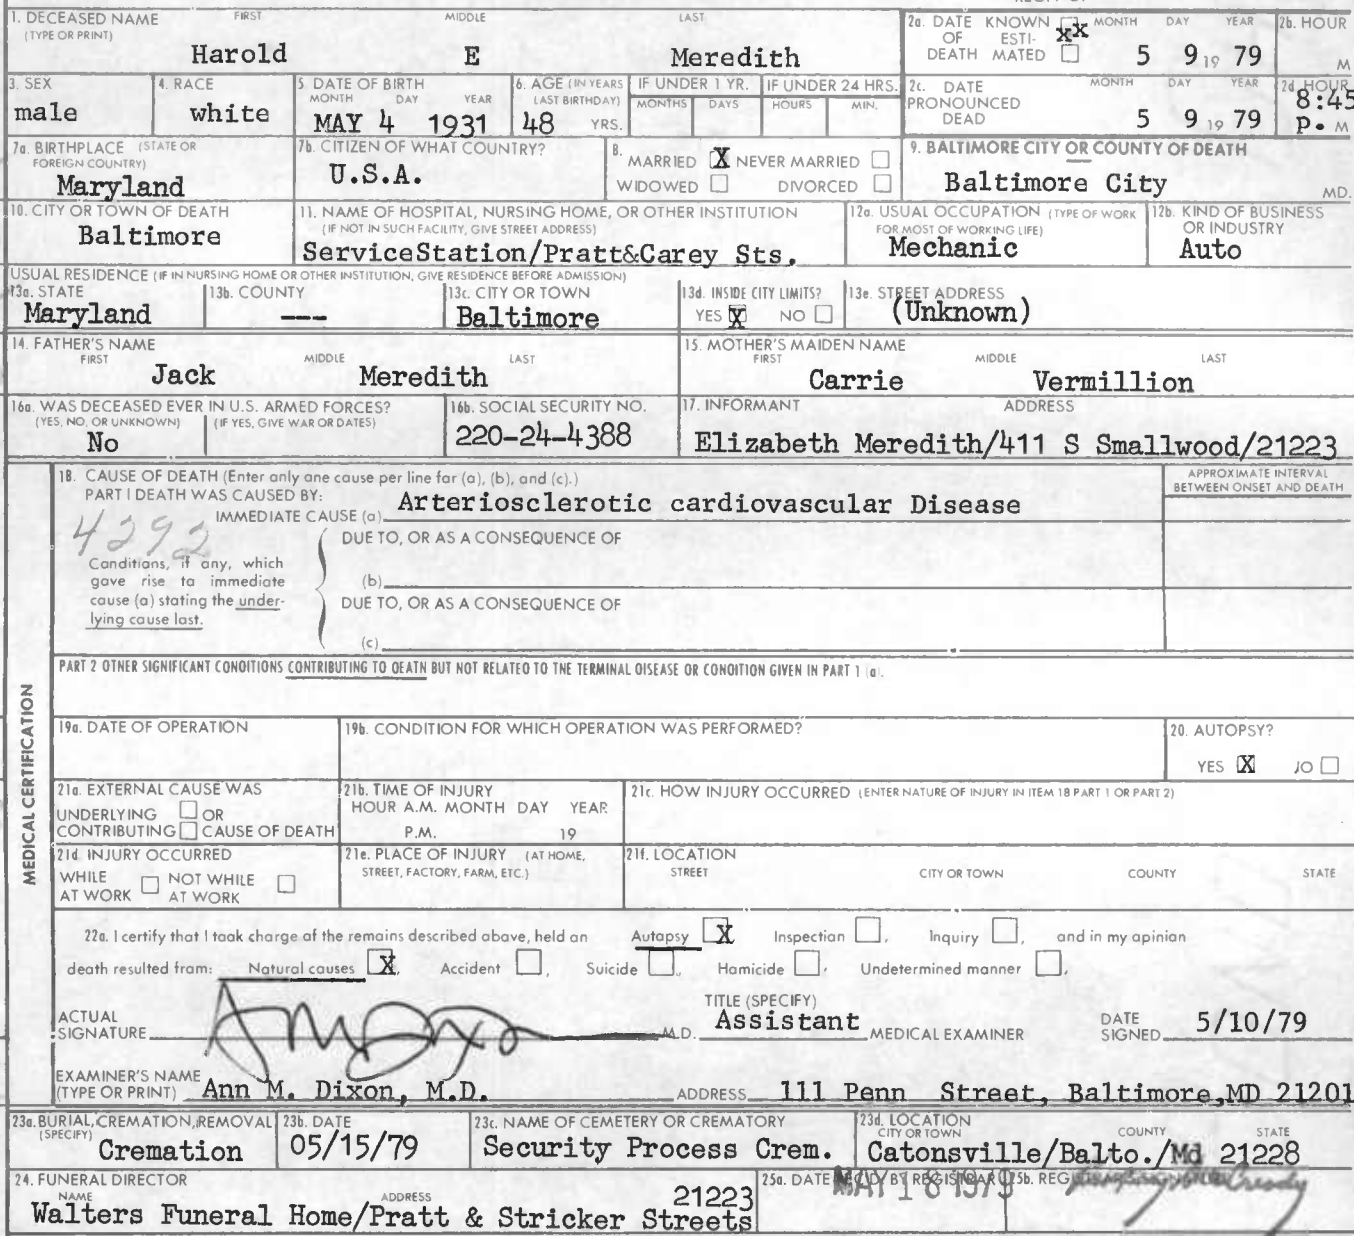 1. DECEASED NAME (TYPE OR PRINT) FIRST MIDDLE LAST
Harold E Meredith
2a. DATE OF DEATH KNOWN ESTI-MATED XX MONTH DAY YEAR
5 9 19 79
2b. HOUR M
3. SEX
male
4. RACE
white
5. DATE OF BIRTH MONTH DAY YEAR
MAY 4 1931
6. AGE (IN YEARS LAST BIRTHDAY)
48 YRS.
IF UNDER 1 YR. MONTHS DAYS
IF UNDER 24 HRS. HOURS MIN.
2c. DATE PRONOUNCED DEAD MONTH DAY YEAR
5 9 19 79
2d HOUR
8:45
P. M
7a. BIRTHPLACE (STATE OR FOREIGN COUNTRY)
Maryland
7b. CITIZEN OF WHAT COUNTRY?
U.S.A.
8. MARRIED X NEVER MARRIED
WIDOWED DIVORCED
9. BALTIMORE CITY OR COUNTY OF DEATH
Baltimore City MD.
10. CITY OR TOWN OF DEATH
Baltimore
11. NAME OF HOSPITAL, NURSING HOME, OR OTHER INSTITUTION
(IF NOT IN SUCH FACILITY, GIVE STREET ADDRESS)
ServiceStation/Pratt&Carey Sts.
12a. USUAL OCCUPATION (TYPE OF WORK FOR MOST OF WORKING LIFE)
Mechanic
12b. KIND OF BUSINESS OR INDUSTRY
Auto
USUAL RESIDENCE (IF IN NURSING HOME OR OTHER INSTITUTION, GIVE RESIDENCE BEFORE ADMISSION)
13a. STATE
Maryland
13b. COUNTY
---
13c. CITY OR TOWN
Baltimore
13d. INSIDE CITY LIMITS?
YES X NO
13e. STREET ADDRESS
(Unknown)
14. FATHER'S NAME FIRST MIDDLE LAST
Jack Meredith
15. MOTHER'S MAIDEN NAME FIRST MIDDLE LAST
Carrie Vermillion
16a. WAS DECEASED EVER IN U.S. ARMED FORCES?
(YES, NO, OR UNKNOWN) (IF YES, GIVE WAR OR DATES)
No
16b. SOCIAL SECURITY NO.
220-24-4388
17. INFORMANT ADDRESS
Elizabeth Meredith/411 S Smallwood/21223
MEDICAL CERTIFICATION
18. CAUSE OF DEATH (Enter only one cause per line for (a), (b), and (c).)
PART I DEATH WAS CAUSED BY:
IMMEDIATE CAUSE (a) Arteriosclerotic cardiovascular Disease
APPROXIMATE INTERVAL BETWEEN ONSET AND DEATH
4292
DUE TO, OR AS A CONSEQUENCE OF
Conditions, if any, which gave rise to immediate cause (a) stating the under-lying cause last.
(b)
DUE TO, OR AS A CONSEQUENCE OF
(c)
PART 2 OTHER SIGNIFICANT CONDITIONS CONTRIBUTING TO DEATH BUT NOT RELATED TO THE TERMINAL DISEASE OR CONDITION GIVEN IN PART 1 (a).
19a. DATE OF OPERATION
19b. CONDITION FOR WHICH OPERATION WAS PERFORMED?
20. AUTOPSY?
YES X NO
21a. EXTERNAL CAUSE WAS
UNDERLYING OR
CONTRIBUTING CAUSE OF DEATH
21b. TIME OF INJURY
HOUR A.M. MONTH DAY YEAR
P.M. 19
21c. HOW INJURY OCCURRED (ENTER NATURE OF INJURY IN ITEM 18 PART 1 OR PART 2)
21d INJURY OCCURRED
WHILE AT WORK NOT WHILE AT WORK
21e. PLACE OF INJURY (AT HOME, STREET, FACTORY, FARM, ETC.)
21f. LOCATION
STREET CITY OR TOWN COUNTY STATE
22a. I certify that I took charge of the remains described above, held an Autopsy X Inspection , Inquiry , and in my opinion
death resulted from: Natural causes X, Accident , Suicide , Homicide , Undetermined manner .
ACTUAL SIGNATURE M.D.
TITLE (SPECIFY)
Assistant MEDICAL EXAMINER
DATE SIGNED 5/10/79
EXAMINER'S NAME (TYPE OR PRINT) Ann M. Dixon, M.D.
ADDRESS 111 Penn Street, Baltimore,MD 21201
23a. BURIAL, CREMATION, REMOVAL (SPECIFY)
Cremation
23b. DATE
05/15/79
23c. NAME OF CEMETERY OR CREMATORY
Security Process Crem.
23d. LOCATION CITY OR TOWN COUNTY STATE
Catonsville/Balto./Md 21228
24. FUNERAL DIRECTOR
NAME ADDRESS
21223
Walters Funeral Home/Pratt & Stricker Streets
25a. DATE REC'D BY REGISTRAR
MAY 18 1979
25b.